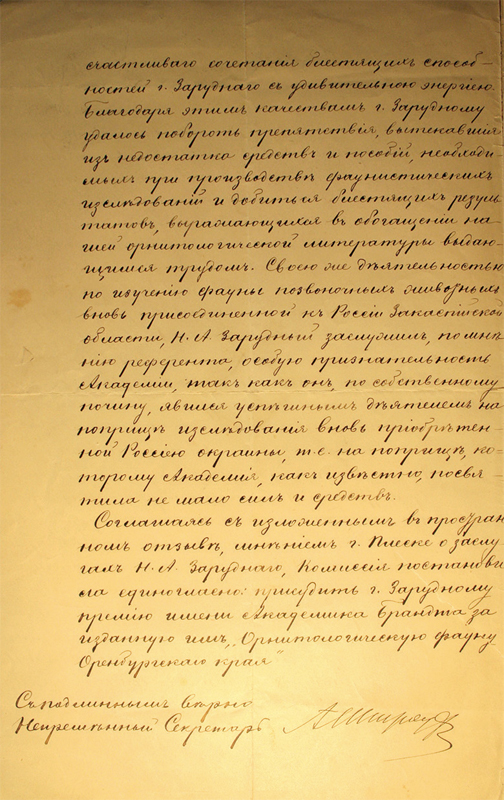 счастливаго сочетанія блестящихъ способ-
ностей г. Заруднаго съ удивительною энергіею.
Благодаря этимъ качествамъ г. Зарудному
удалось побороть препятствія, вытекавшія
изъ недостатка средствъ и пособій, необходи-
мыхъ при производствѣ фаунистическихъ
изслѣдованій и добиться блестящихъ резуль-
татовъ, выражающихся въ обогащеніи на-
шей орнитологической литературы выдаю-
щимся трудомъ. Своею же дѣятельностью
по изученію фауны позвоночныхъ животныхъ
вновь присоединенной къ Россіи Закаспійской
области, Н. А. Зарудный заслужилъ, по мнѣ-
нію референта, особую признательность
Академіи, такъ какъ онъ, по собственному
почину, явился успѣшнымъ дѣятелемъ на
поприщѣ изслѣдованія вновь пріобрѣтен-
ной Россіею окраины, т.е. на поприщѣ, ко-
торому Академія, какъ извѣстно, посвя-
тила не мало силъ и средствъ.
Соглашаясь съ изложеннымъ въ простран-
номъ отзывѣ, мнѣніемъ г. Плеске о заслу-
гахъ Н. А. Заруднаго, Комиссія постанови-
ла единогласно: присудить г. Зарудному
премію имени Академика Брандта за
изданную имъ „Орнитологическую фауну
Оренбургскаго края"
Съ подлиннымъ вѣрно
Непремѣнный Секретарь